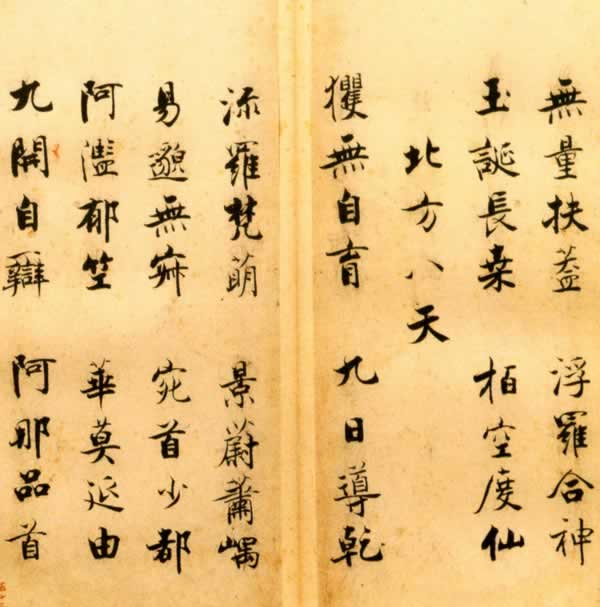 無量扶蓋　浮羅合神
玉誕長桒　栢空度仙
北方八天
玃無自育　九日導乾
流羅梵萌　景蔚蕭嵎
易邈無寂　宛首少都
阿濫郁竺　華莫延由
九開自辯　阿那品首